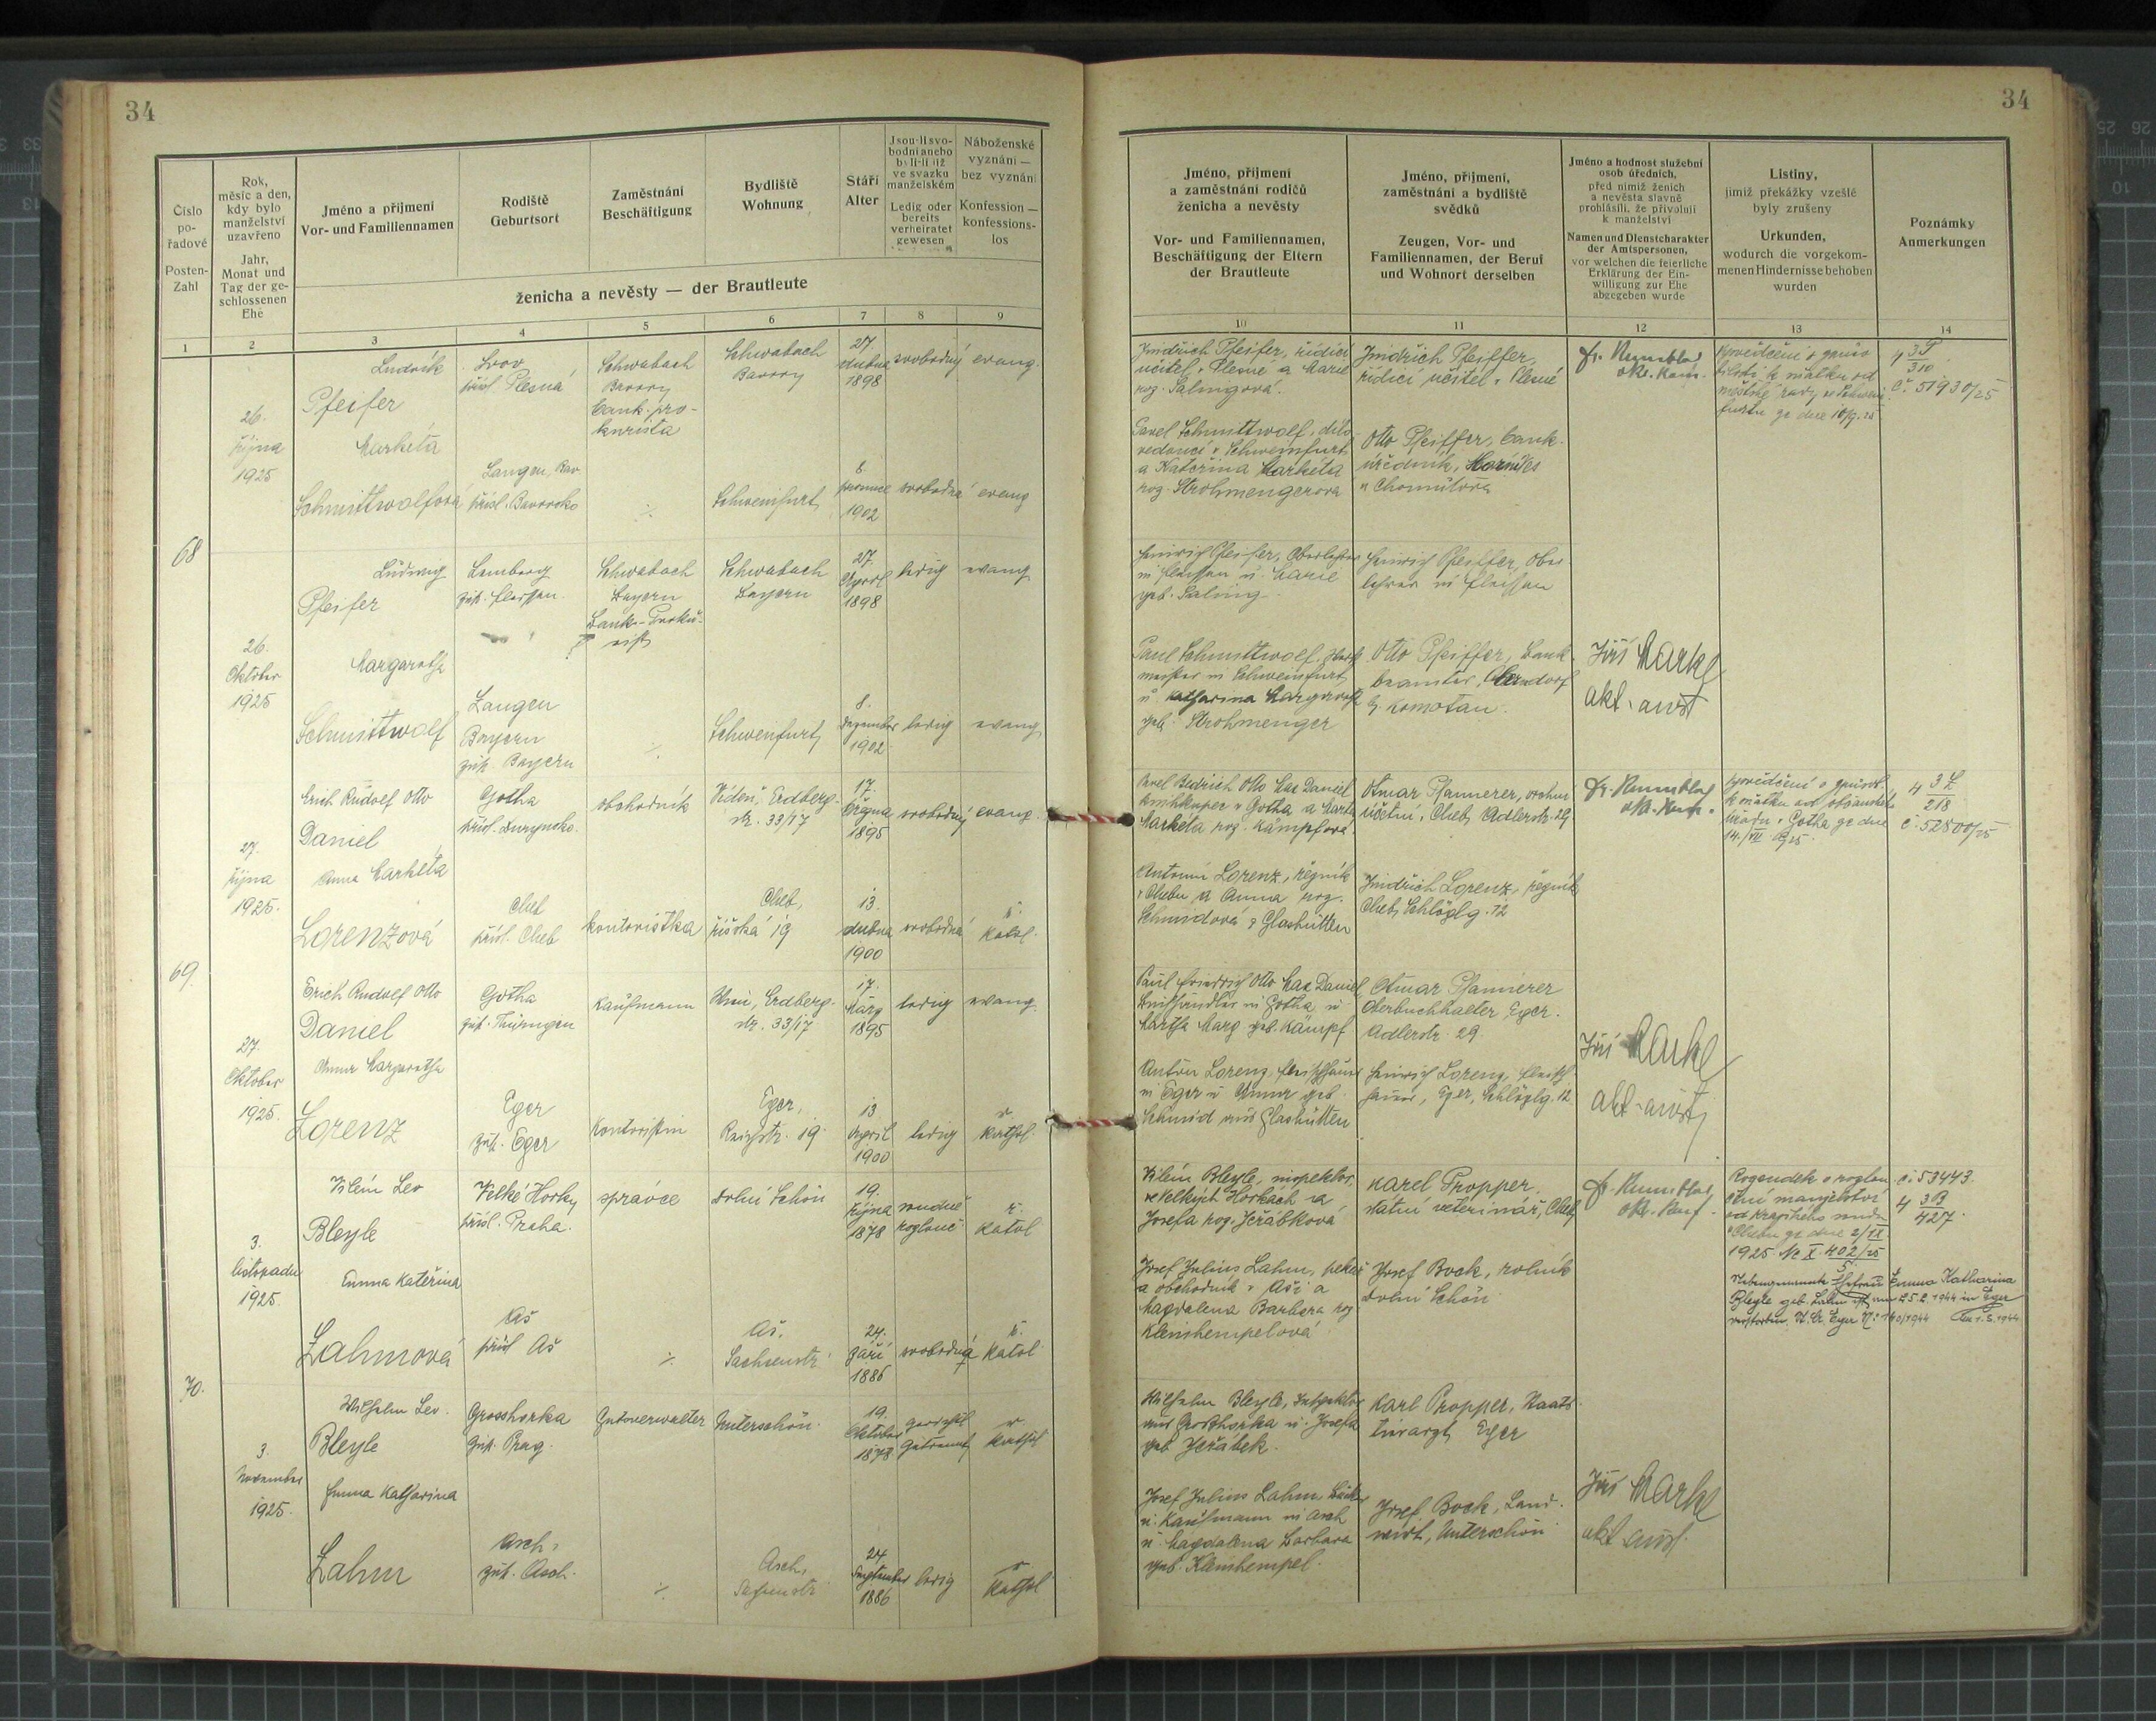 34
Číslo
po-
řadové
Posten-
Zahl
Rok,
měsíc a den,
kdy bylo
manželství
uzavřeno
Jahr,
Monat und
Tag der ge-
schlossenen
Ehe
Jméno a příjmení
Vor- und Familiennamen
Rodiště
Geburtsort
Zaměstnání
Beschäftigung
Bydliště
Wohnung
Stáří
Alter
Jsou-li svo-
bodni anebo
byli-li již
ve svazku
manželském
Ledig oder
bereits
verheiratet
gewesen
Náboženské
vyznání —
bez vyznání
Konfession —
konfessions-
los
ženicha a nevěsty — der Brautleute
1
2
3
4
5
6
7
8
9
26.
října
1925
Ludvík
Pfeifer
Lvov
přísl. Plesná
Schwabach
Bavory
bank. pro-
kurista
Schwabach
Bavory
27.
dubna
1898
svobodný
evang.
Markéta
Schmittwolfová
Langen, Bav.
přísl. Bavorsko
Schweinfurt
8.
prosince
1902
svobodná
evang
68
26.
Oktober
1925
Ludwig
Pfeifer
Lemberg
zust. Fleissen.
Schwabach
Bayern
Bank-Proku-
rist
Schwabach
Bayern
27.
April
1898
ledig
evang.
Margaretha
Schmittwolf
Langen
Bayern
zust. Bayern
Schweinfurt
8.
Dezember
1902
ledig
evang.
27.
října
1925.
Erich Rudolf Otto
Daniel
Gotha
přísl. Durynsko.
obchodník
Vídeň, Erdberg-
str. 33/17
17.
března
1895
svobodný
evang.
Anna Markéta
Lorenzová
Cheb
přísl. Cheb
kontoristka
Cheb,
říšská 19
13.
dubna
1900
svobodná
ř.
katol.
69.
27.
Oktober
1925.
Erich Rudolf Otto
Daniel
Gotha
zust. Thüringen
Kaufmann
Wien, Erdberg-
str. 33/17
17.
März
1895
ledig
evang.
Anna Margaretha
Lorenz
Eger
zust. Eger
Kontoristin
Eger,
Reichsstr. 19.
13
April
1900
ledig
r
kathol.
3.
listopadu
1925.
Vilém Leo
Bleyle
Velké Horky
přísl. Praha.
správce
Dolní Schön
19.
října
1878
soudně
rozlouč.
ř.
katol
Emma Kateřina
Lahmová
Aš
přísl Aš
Aš.
Sachsenstr.
24.
září
1886
svobodná
ř.
katol
70.
3.
November
1925.
Wilhelm Leo.
Bleyle
Grosshorka
zust. Prag.
Gutsverwalter
Unterschön.
19.
Oktober
1878
gerichtl
getrennt
r
kathol
Emma Katharina
Lahm
Asch,
zust. Asch.
Asch,
24.
September
1886
ledig
r
kathol
34
Jméno, příjmení
a zaměstnání rodičů
ženicha a nevěsty
Vor- und Familiennamen,
Beschäftigung der Eltern
der Brautleute
Jméno, příjmení,
zaměstnání a bydliště
svědků
Zeugen, Vor- und
Familiennamen, der Beruf
und Wohnort derselben
Jméno a hodnost služební
osob úředních,
před nimiž ženich
a nevěsta slavně
prohlásili, že přivolují
k manželství
Namen und Dienstcharakter
der Amtspersonen,
vor welchen die feierliche
Erklärung der Ein-
willigung zur Ehe
abgegeben wurde
Listiny,
jimiž překážky vzešlé
byly zrušeny
Urkunden,
wodurch die vorgekom-
menen Hindernisse behoben
wurden
Poznámky
Anmerkungen
10
11
12
13
14
Jindřich Pfeifer, řídící
učitel v Plesné a Marie
roz. Salingová.
Jindřich Pfeiffer,
řídící učitel v Plesné
č. 51930/25
Pavel Schmittwolf, dílo-
vedoucí v Schweinfurt
a Kateřina Markéta
roz. Strohmengerova
Otto Pfeiffer, bank.
úředník, Horní Ves
u Chomutova
Heinrich Pfeifer, Oberlehrer
in Fleissen u. Marie
geb. Saling.
Heinrich Pfeiffer, Ober
lehrer in Fleissen
Paul Schmittwolf, Werk
meister in Schweinfurt
u Katharina Margareth
geb. Strohmenger
Otto Pfeiffer, Bank-
beamter, Oberndorf
b. Komotau.
Jiří Markl
Pavel Bedřich Otto Max Daniel
knihkupec v Gotha a Marta
Markéta roz. Kämpfova
Otmar Pfannerer, vrchní
účetní, Cheb, Adlerstr. 29
4 3L/218
č. 52800/25
Antonín Lorenz, řezník
v Chebu a Anna roz.
Schmidová z Glashütten
Jindřich Lorenz, řezník
Cheb, Schlögelg. 12
Paul Friedrich Otto Max Daniel
Buchhändler in Gotha u
Martha Marg geb. Kämpf
Otmar Pfannerer
Oberbuchhalter, Eger.
Adlerstr. 29.
Anton Lorenz, Fleischhauer
in Eger u Anna geb.
Schmid aus Glashütten
Heinrich Lorenz, Fleisch
hauer, Eger, Schlögelg. 12
Jiří Markl
Vilém Bleyle, inspektor
ve Velkých Horkách a
Josefa roz. Jeřábková
Karel Propper,
státní veterinář, Cheb
Rozsudek o rozlou
čení manželství
od krajského soudu
v Chebu ze dne 2/IX.
1925 Nc X 402/25
5
č. 53443.
4 3B/427.
Josef Julius Lahm, pekař
a obchodník v Aši a
Magdalena Barbora roz
Kleinhempelová
Josef Bock, rolník
Dolní Schön
Nebengenannte Ehefrau Emma Katharina
Bleyle geb. Lahm ist am 25.2.1944 in Eger
verstorben. St. A. Eger Nr. 140/1944
Wilhelm Bleyle, Inspektor
aus Grosshorka u. Josefa
geb. Jeřábek.
Karl Propper, Staats-
tierarzt Eger
Josef Julius Lahm, Bäcker
u. Kaufmann in Asch
u. Magdalena Barbara
geb. Kleinhempel.
Josef Bock, Land-
wirt, Unterschön
Jiří Markl